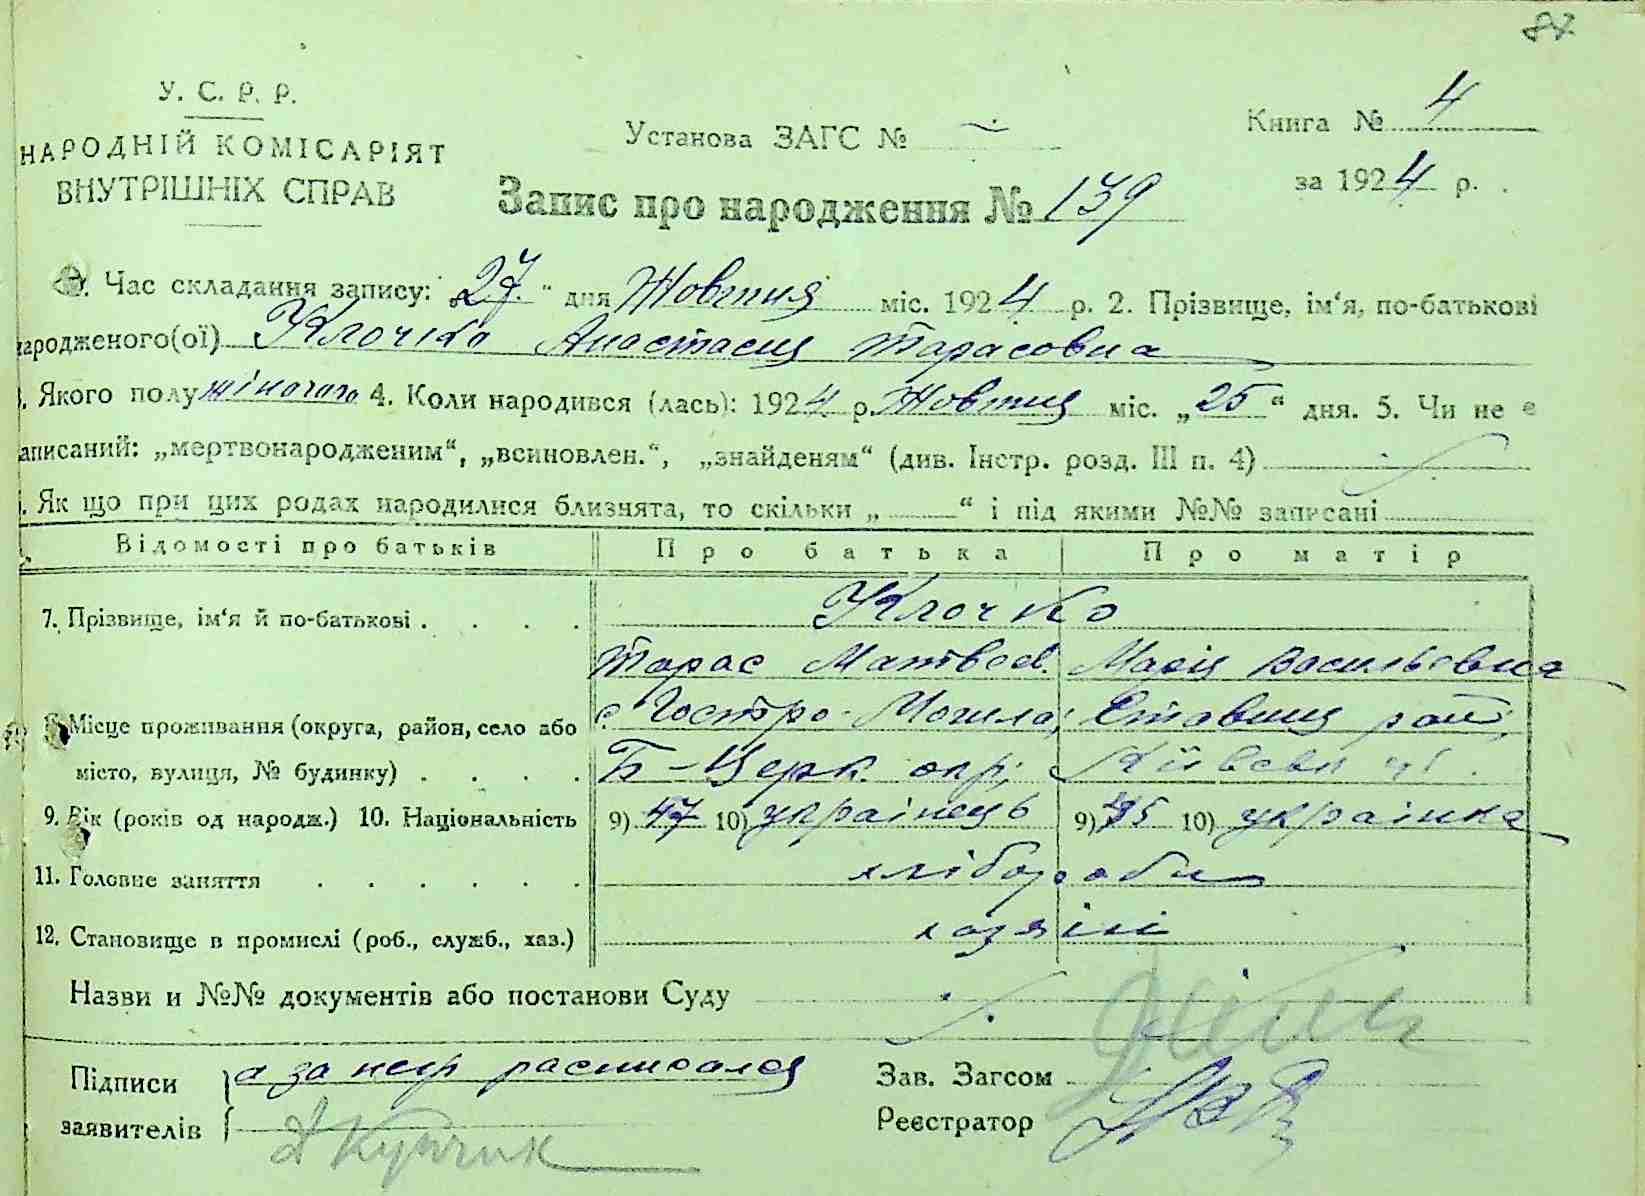 87.
У. С. Р. Р.
НАРОДНІЙ КОМІСАРІЯТ
ВНУТРІШНІХ СПРАВ
Установа ЗАГС №
Книга № 4
за 1924 р.
Запис про народження № 139
Час складання запису: „27“ дня Жовтня міс. 1924 р. 2. Прізвище, ім‘я, по-батькові
ародженого(ої) Клочко Анастасия Тарасовна
. Якого полу жіночого 4. Коли народився (лась): 1924 р. Жовтня міс. „25“ дня. 5. Чи не є
аписаний: „мертвонародженим“, „всиновлен.“, „знайденям“ (див. Інстр. розд. III п. 4)
. Як що при цих родах народилися близнята, то скільки „ “ і під якими №№ записані
Відомості про батьків Про батька Про матір
7. Прізвище, ім‘я й по-батькові . . . . Клочко
Тарас Матвеев. Марія Васильевна
8. Місце проживання (округа, район, село або с. Гостро-Могила, Ставищ рай,
місто, вулиця, № будинку) . . . . Б-Церк. окр, Київськ
9. Вік (років од народж.) 10. Національність 9) 47 10) українець 9) 35 10) українка
11. Головне заняття . . . . . . хлібороби
12. Становище в промислі (роб., служб., хаз.) хазяїні
Назви и №№ документів або постанови Суду
Підписи а за неї расписался
заявителів Купчик
Зав. Загсом
Реєстратор